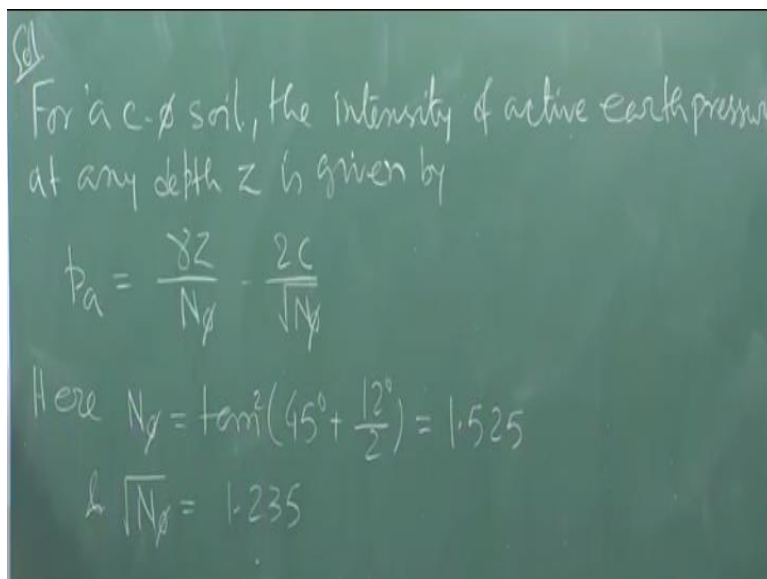 Sol
For a c-ø soil, the intensity of active earth pressur
at any depth z is given by
pₐ = γz/Nø - 2c/√Nø
Here Nø = tan²(45° + 12°/2) = 1.525
& √Nø = 1.235